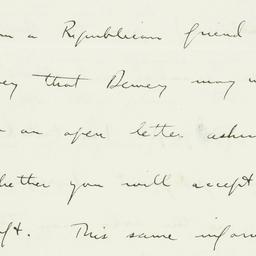 a Republican friend
that Dewey may
an open letter
whether you will accept
. This same